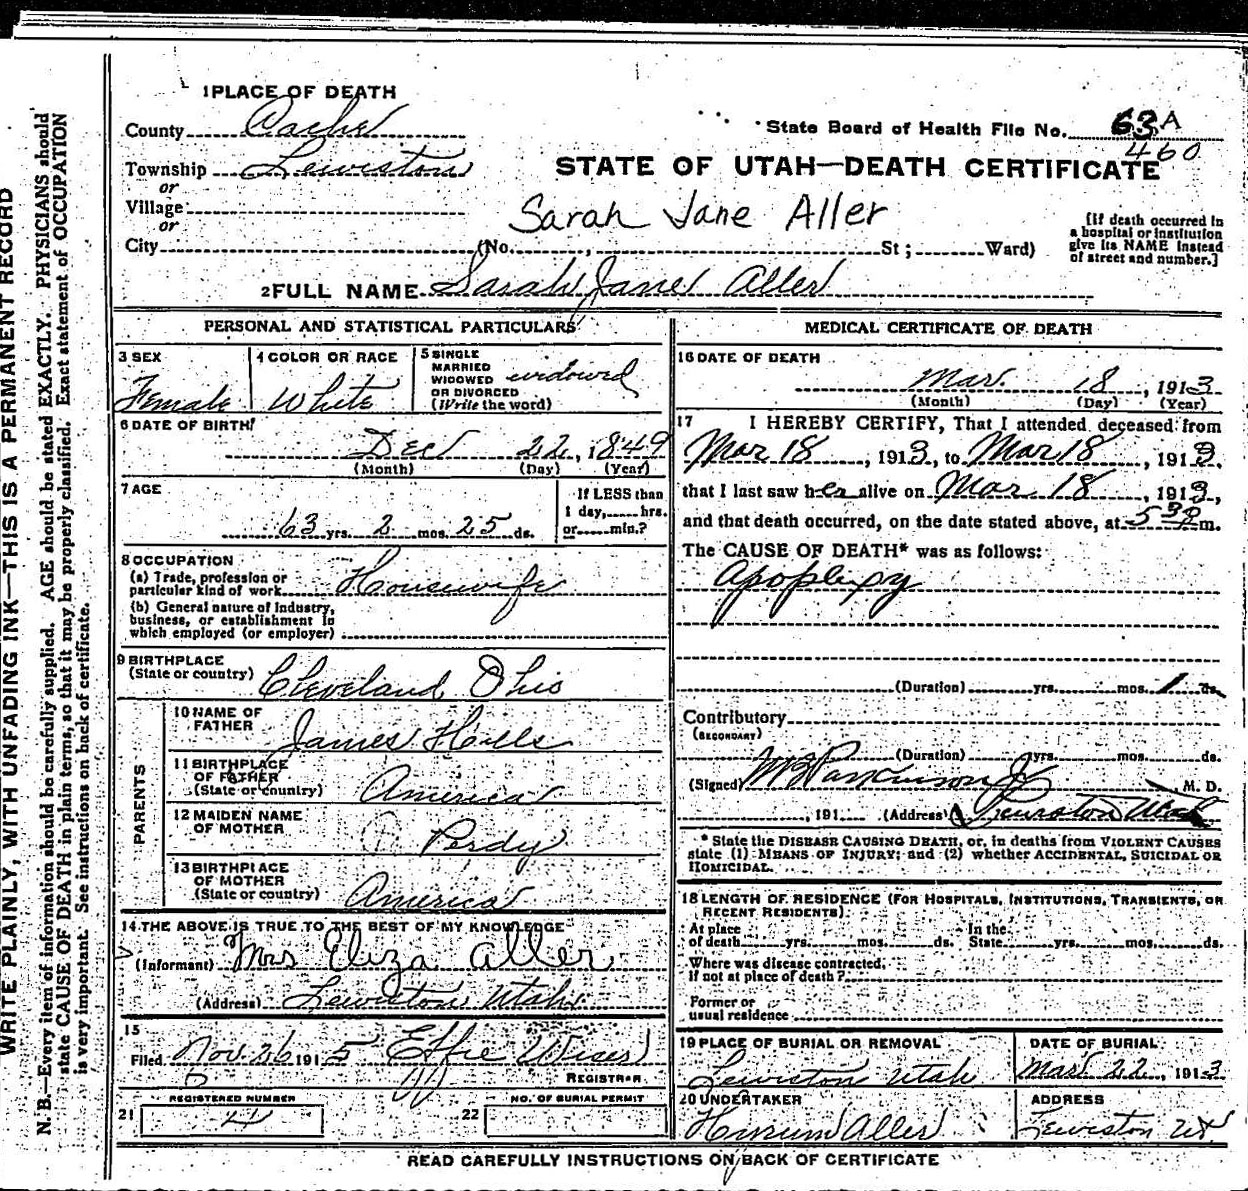 1 PLACE OF DEATH
County Cache
State Board of Health File No. 63A
460
Township Lewiston
STATE OF UTAH—DEATH CERTIFICATE
or
Village
or
Sarah Jane Aller
City (No. , St ; Ward)
[If death occurred in
a hospital or institution
give its NAME instead
of street and number.]
2 FULL NAME Sarah Jane Aller
PERSONAL AND STATISTICAL PARTICULARS
3 SEX
Female
4 COLOR OR RACE
White
5 SINGLE
MARRIED
WIDOWED
OR DIVORCED
(Write the word)
widowed
6 DATE OF BIRTH
Dec 22, 1849
(Month) (Day) (Year)
7 AGE
63 yrs. 2 mos. 25 ds.
If LESS than
1 day, hrs.
or min.?
8 OCCUPATION
(a) Trade, profession or
particular kind of work Housewife
(b) General nature of Industry,
business, or establishment in
which employed (or employer)
9 BIRTHPLACE
(State or country) Cleveland Ohio
PARENTS
10 NAME OF
FATHER James Hills
11 BIRTHPLACE
OF FATHER
(State or country) America
12 MAIDEN NAME
OF MOTHER Perdy
13 BIRTHPLACE
OF MOTHER
(State or country) America
14 THE ABOVE IS TRUE TO THE BEST OF MY KNOWLEDGE
(Informant) Mrs Eliza Aller
(Address) Lewiston Utah
15
Filed Nov. 26 1915 Effie Wiser
REGISTRAR
REGISTERED NUMBER
21 4
NO. OF BURIAL PERMIT
22
MEDICAL CERTIFICATE OF DEATH
16 DATE OF DEATH
Mar. 18, 1913
(Month) (Day) (Year)
17 I HEREBY CERTIFY, That I attended deceased from
Mar 18, 1913, to Mar 18, 1913,
that I last saw her alive on Mar 18, 1913,
and that death occurred, on the date stated above, at 5 30 P m.
The CAUSE OF DEATH* was as follows:
Apoplexy
(Duration) yrs. mos. 1 ds.
Contributory
(SECONDARY)
(Duration) yrs. mos. ds.
(Signed) W B Parkinson Jr M. D.
, 191 (Address) Lewiston Utah
* State the DISEASE CAUSING DEATH, or, in deaths from VIOLENT CAUSES
state (1) MEANS OF INJURY; and (2) whether ACCIDENTAL, SUICIDAL OR
HOMICIDAL.
18 LENGTH OF RESIDENCE (FOR HOSPITALS, INSTITUTIONS, TRANSIENTS, OR
RECENT RESIDENTS).
At place
of death yrs. mos. ds.
In the
State yrs. mos. ds.
Where was disease contracted,
If not at place of death?
Former or
usual residence
19 PLACE OF BURIAL OR REMOVAL
Lewiston Utah
DATE OF BURIAL
Mar 22, 1913
20 UNDERTAKER
Hirum Aller
ADDRESS
Lewiston Ut
READ CAREFULLY INSTRUCTIONS ON BACK OF CERTIFICATE
WRITE PLAINLY, WITH UNFADING INK—THIS IS A PERMANENT RECORD
N. B.—Every item of information should be carefully supplied. AGE should be stated EXACTLY. PHYSICIANS should
state CAUSE OF DEATH in plain terms, so that it may be properly classified. Exact statement of OCCUPATION
is very important. See instructions on back of certificate.